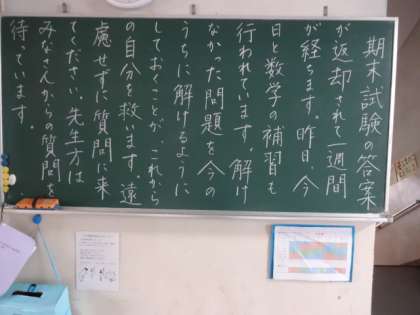 期末試験の答案
が返却されて一週間
が経ちます。昨日、今
日と数学の補習も
行われています。解け
なかった問題を今の
うちに解けるように
しておくことが、これから
の自分を救います。遠
慮せずに質問に来
てください。先生方は
みなさんからの質問を
待っています。